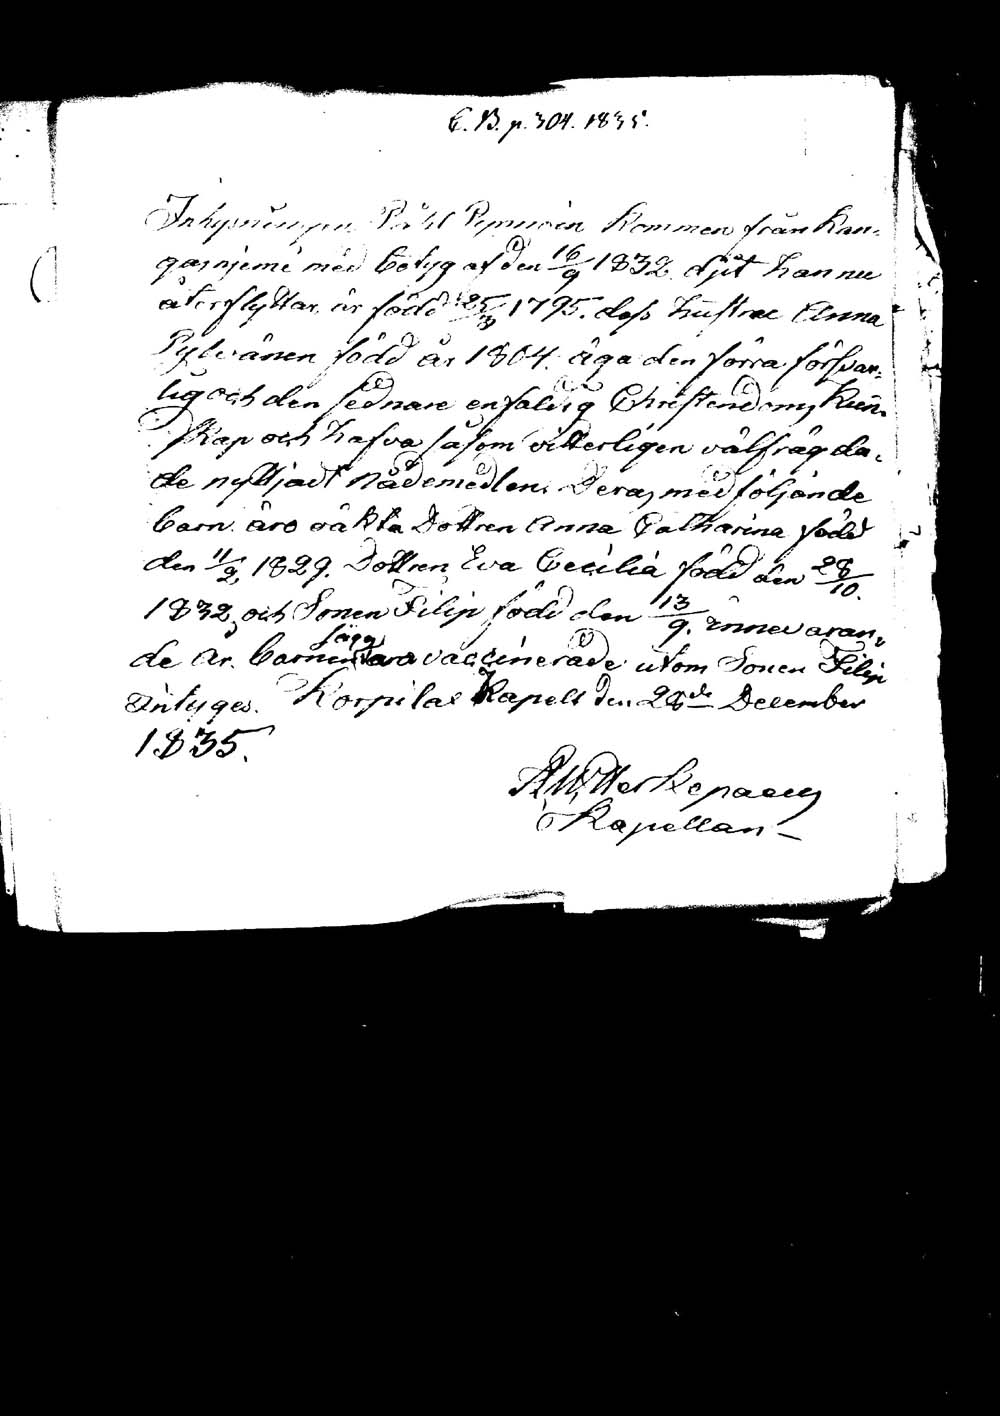 C. B. p. 304. 1835.
Inhysningen Påhl Pynnöin kommen från Kan-
gasnjemi med betyg af den 16/9 1832 djit han nu
återflyttar, är född 25/3 1795. dess hustru Anna
Pylvänen född år 1804. äga den förra försvar-
lig och den sednare enfaldig Christendoms kun-
skap och hafva såsom vitterligen välfrägda-
de nyttjadt nådemedlen. Deras medföljande
barn äro oäkta Dottren Anna Catharina född
den 11/2 1829. Dottren Eva Cecilia född den 28/10
1832, och Sonen Filip född den 13/9 innevaran-
de år. Barnen säges vara vaccinerade utom Sonen Filip
intyges. Korpilax Kapell den 28de December
1835.
Kapellan